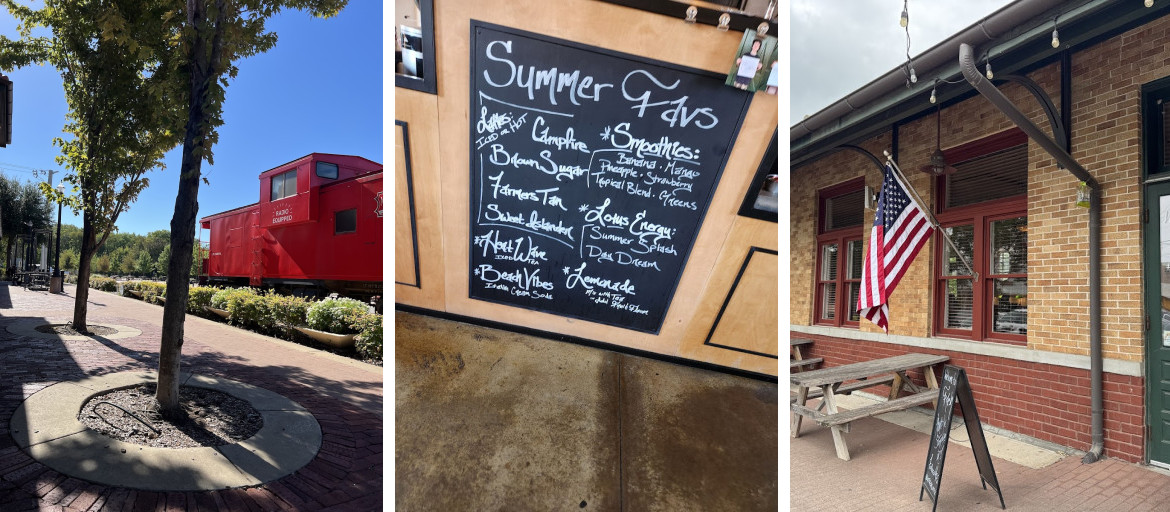 RADIO
EQUIPPED
Summer Favs
Lattes:
ICED or HOT
Campfire
Brown Sugar
Farmers Tan
Sweet Islander
*Next Wave
ICED TEA
*Beach Vibes
Italian Cream Soda
*Smoothies:
Banana • Mango
Pineapple • Strawberry
Tropical Blend • Greens
*Lotus Energy:
Summer Splash
Day Dream
*Lemonade